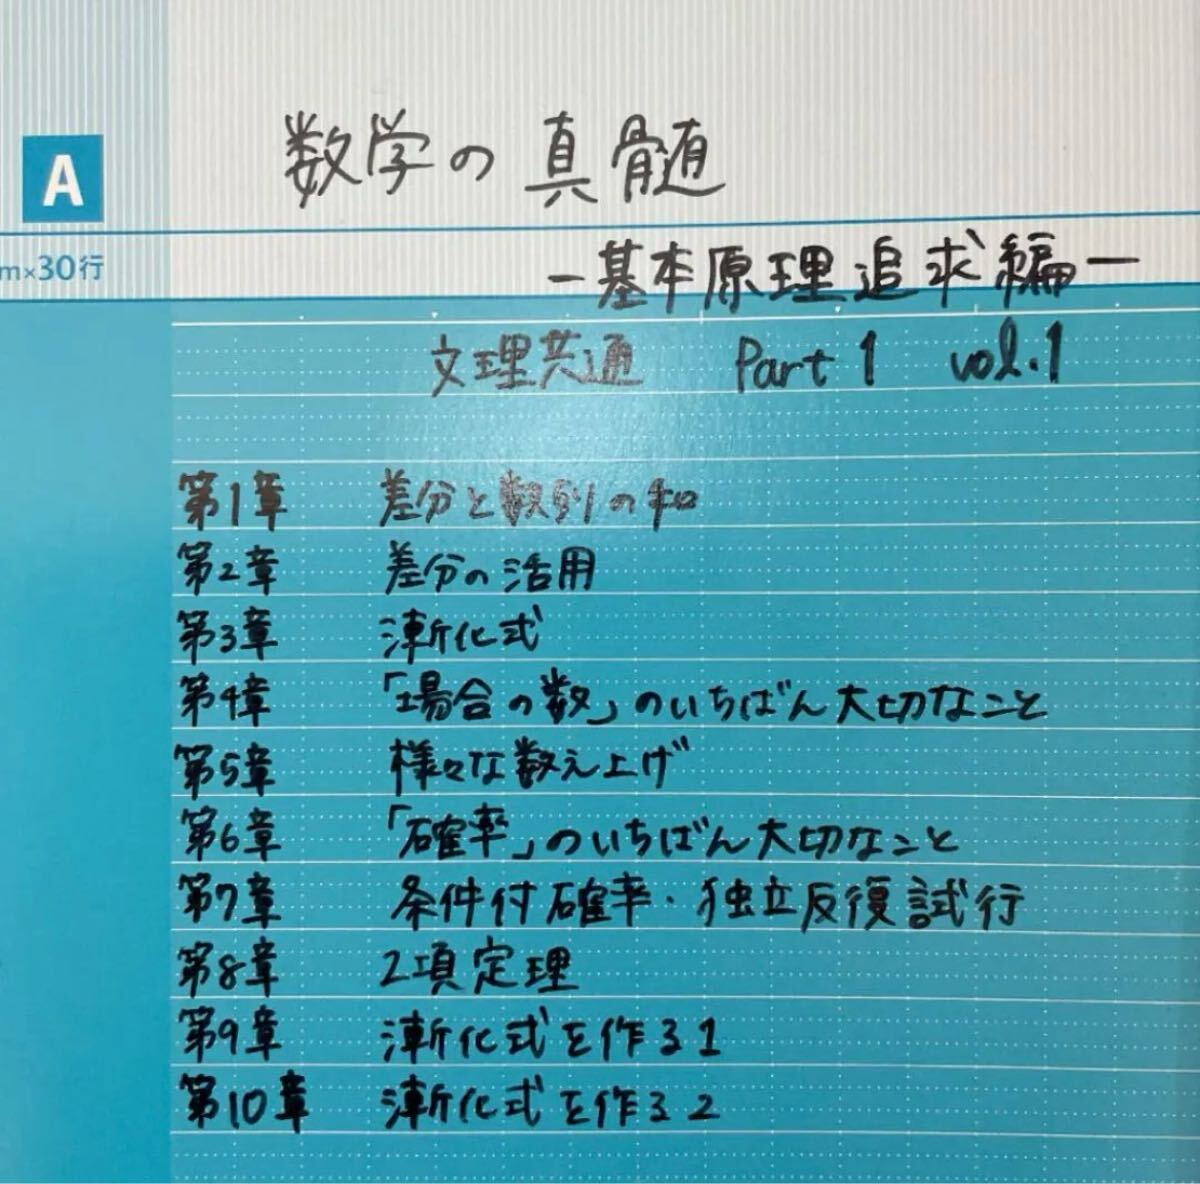 数学の真髄
A
ー基本原理追求編ー
m×30行
文理共通 Part 1 vol.1
第1章 差分と数列の和
第2章 差分の活用
第3章 漸化式
第4章 「場合の数」のいちばん大切なこと
第5章 様々な数え上げ
第6章 「確率」のいちばん大切なこと
第7章 条件付確率・独立反復試行
第8章 2項定理
第9章 漸化式を作る1
第10章 漸化式を作る2